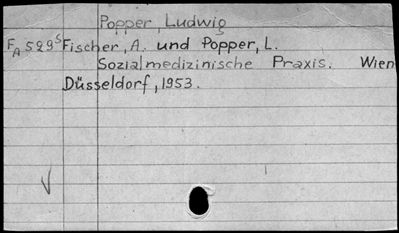 Popper, Ludwig
FA 529S Fischer, A. und Popper, L.
Sozialmedizinische Praxis. Wien
Düsseldorf, 1953.